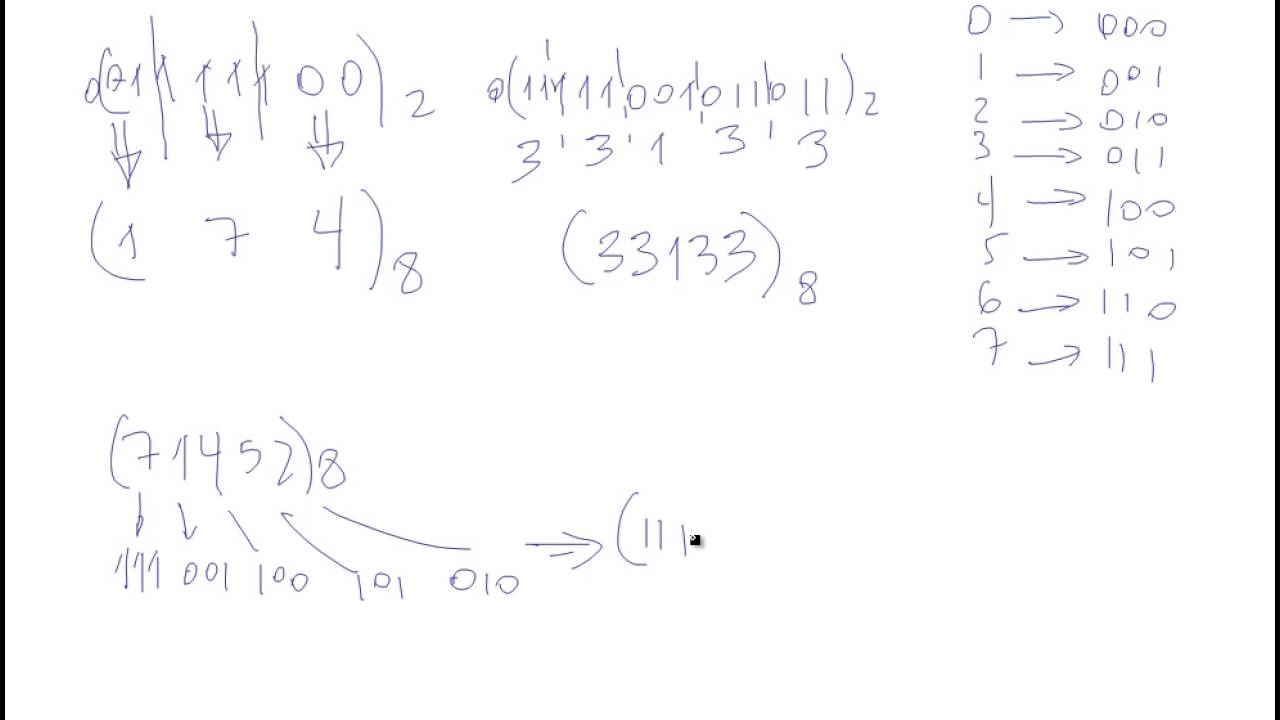 0(01 1 1 1 1 0 0)2
(1 7 4)8
3 3 1 3 3
(33133)8
0 → 000
1 → 001
2 → 010
3 → 011
4 → 100
5 → 101
6 → 110
7 → 111
(71452)8
111 001 100 101 010 ⇒ (111